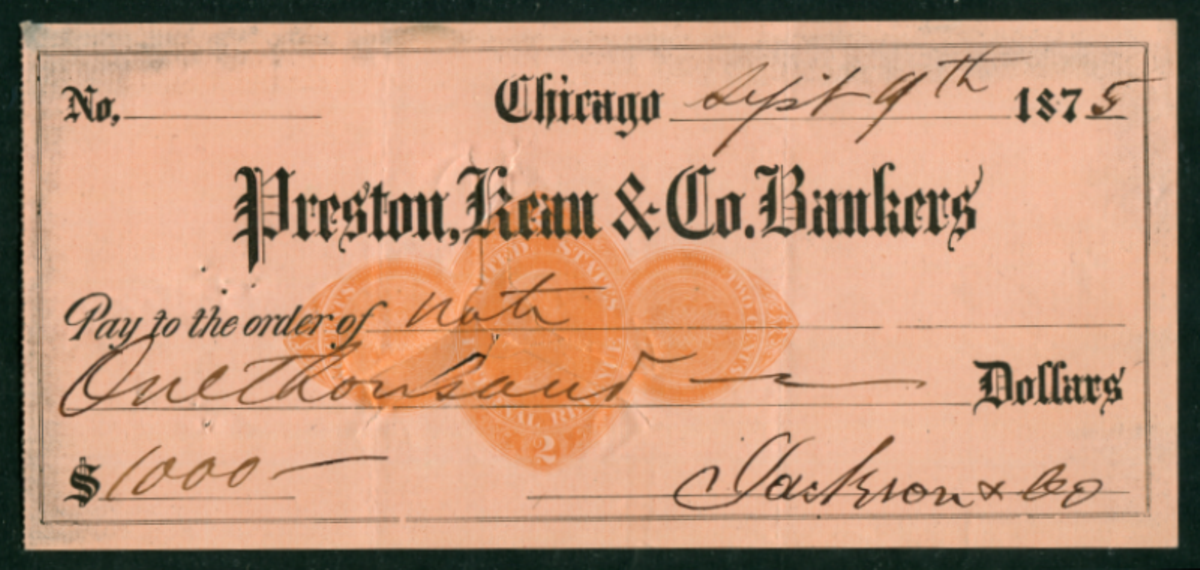 No.
Chicago Sept 9th 1875
Preston, Kean & Co. Bankers
Pay to the order of note
One thousand Dollars
$1000
Jackson & Co
UNITED STATES
TWO CENTS
2